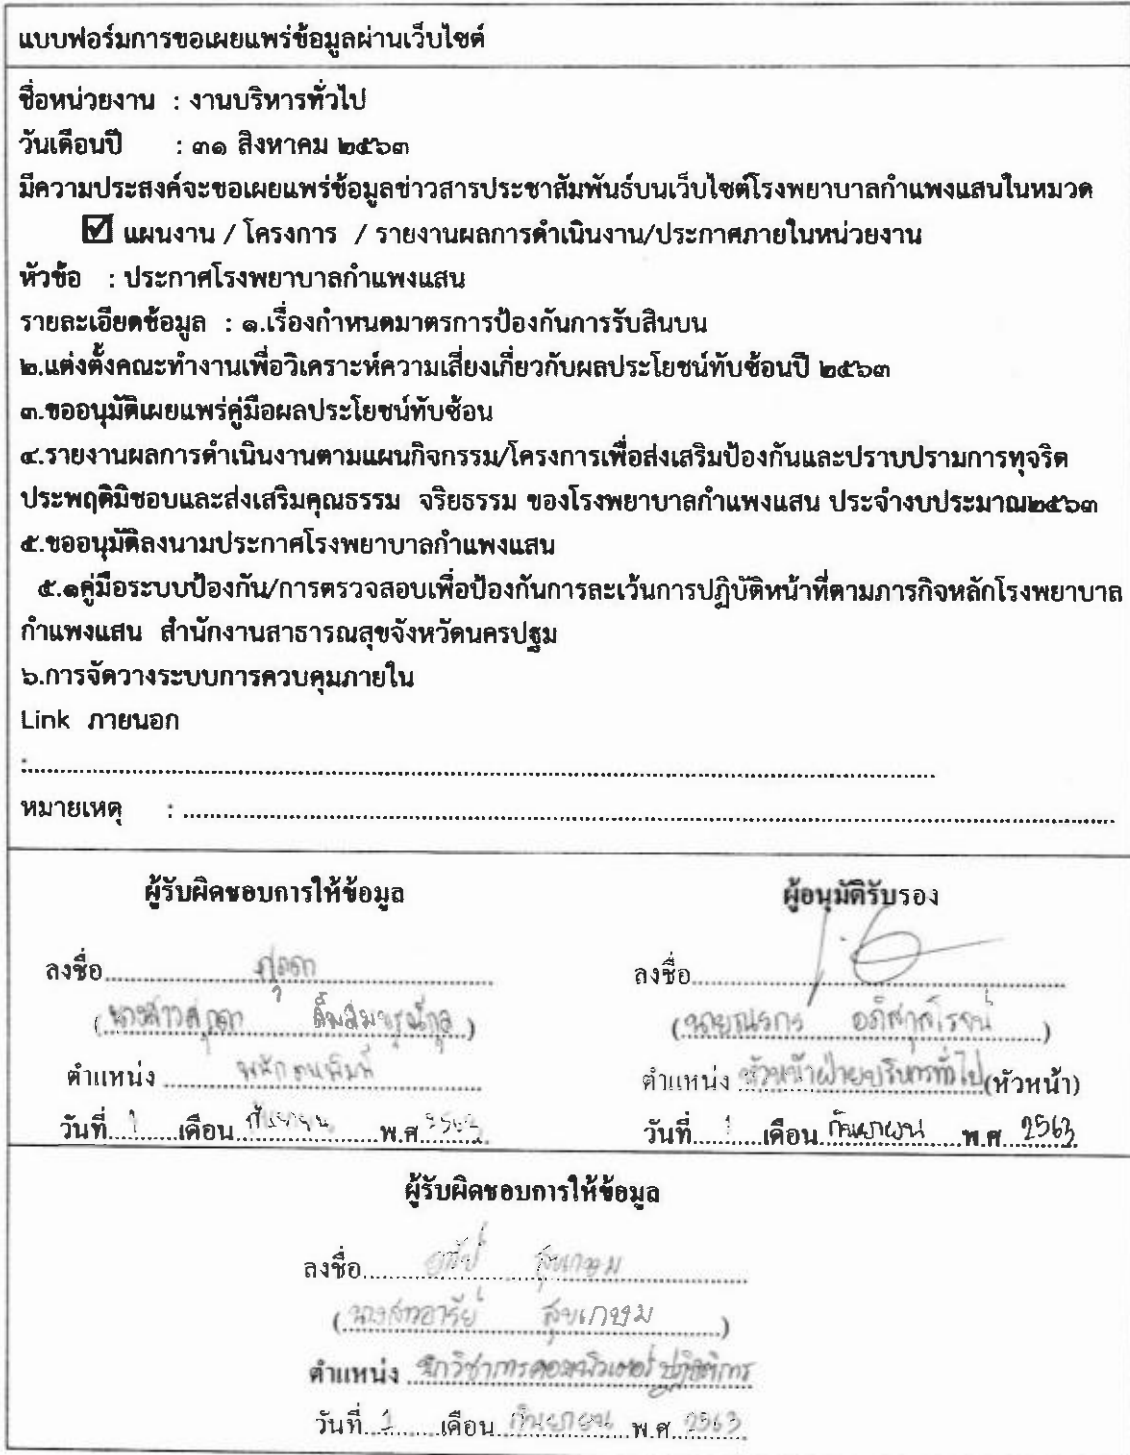 แบบฟอร์มการขอเผยแพร่ข้อมูลผ่านเว็บไซต์
ชื่อหน่วยงาน : งานบริหารทั่วไป
วันเดือนปี : ๓๑ สิงหาคม ๒๕๖๓
มีความประสงค์จะขอเผยแพร่ข้อมูลข่าวสารประชาสัมพันธ์บนเว็บไซต์โรงพยาบาลกำแพงแสนในหมวด
☑ แผนงาน / โครงการ / รายงานผลการดำเนินงาน/ประกาศภายในหน่วยงาน
หัวข้อ : ประกาศโรงพยาบาลกำแพงแสน
รายละเอียดข้อมูล : ๑.เรื่องกำหนดมาตรการป้องกันการรับสินบน
๒.แต่งตั้งคณะทำงานเพื่อวิเคราะห์ความเสี่ยงเกี่ยวกับผลประโยชน์ทับซ้อนปี ๒๕๖๓
๓.ขออนุมัติเผยแพร่คู่มือผลประโยชน์ทับซ้อน
๔.รายงานผลการดำเนินงานตามแผนกิจกรรม/โครงการเพื่อส่งเสริมป้องกันและปราบปรามการทุจริต
ประพฤติมิชอบและส่งเสริมคุณธรรม จริยธรรม ของโรงพยาบาลกำแพงแสน ประจำงบประมาณ๒๕๖๓
๕.ขออนุมัติลงนามประกาศโรงพยาบาลกำแพงแสน
๕.๑คู่มือระบบป้องกัน/การตรวจสอบเพื่อป้องกันการละเว้นการปฏิบัติหน้าที่ตามภารกิจหลักโรงพยาบาล
กำแพงแสน สำนักงานสาธารณสุขจังหวัดนครปฐม
๖.การจัดวางระบบการควบคุมภายใน
Link ภายนอก
:
หมายเหตุ :
ผู้รับผิดชอบการให้ข้อมูล ผู้อนุมัติรับรอง
ลงชื่อ ลงชื่อ
(นางสาว ) (นาย )
ตำแหน่ง ตำแหน่ง หัวหน้าฝ่ายบริหารทั่วไป(หัวหน้า)
วันที่ 1 เดือน กันยายน พ.ศ 2563 วันที่ 1 เดือน กันยายน พ.ศ 2563
ผู้รับผิดชอบการให้ข้อมูล
ลงชื่อ สุขเกษม
(นางสาวอารีย์ สุขเกษม)
ตำแหน่ง นักวิชาการคอมพิวเตอร์ปฏิบัติการ
วันที่ 1 เดือน กันยายน พ.ศ 2563